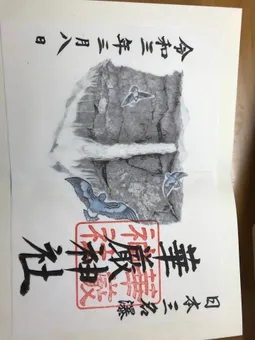 日本三名瀑
華厳神社
令和三年三月八日